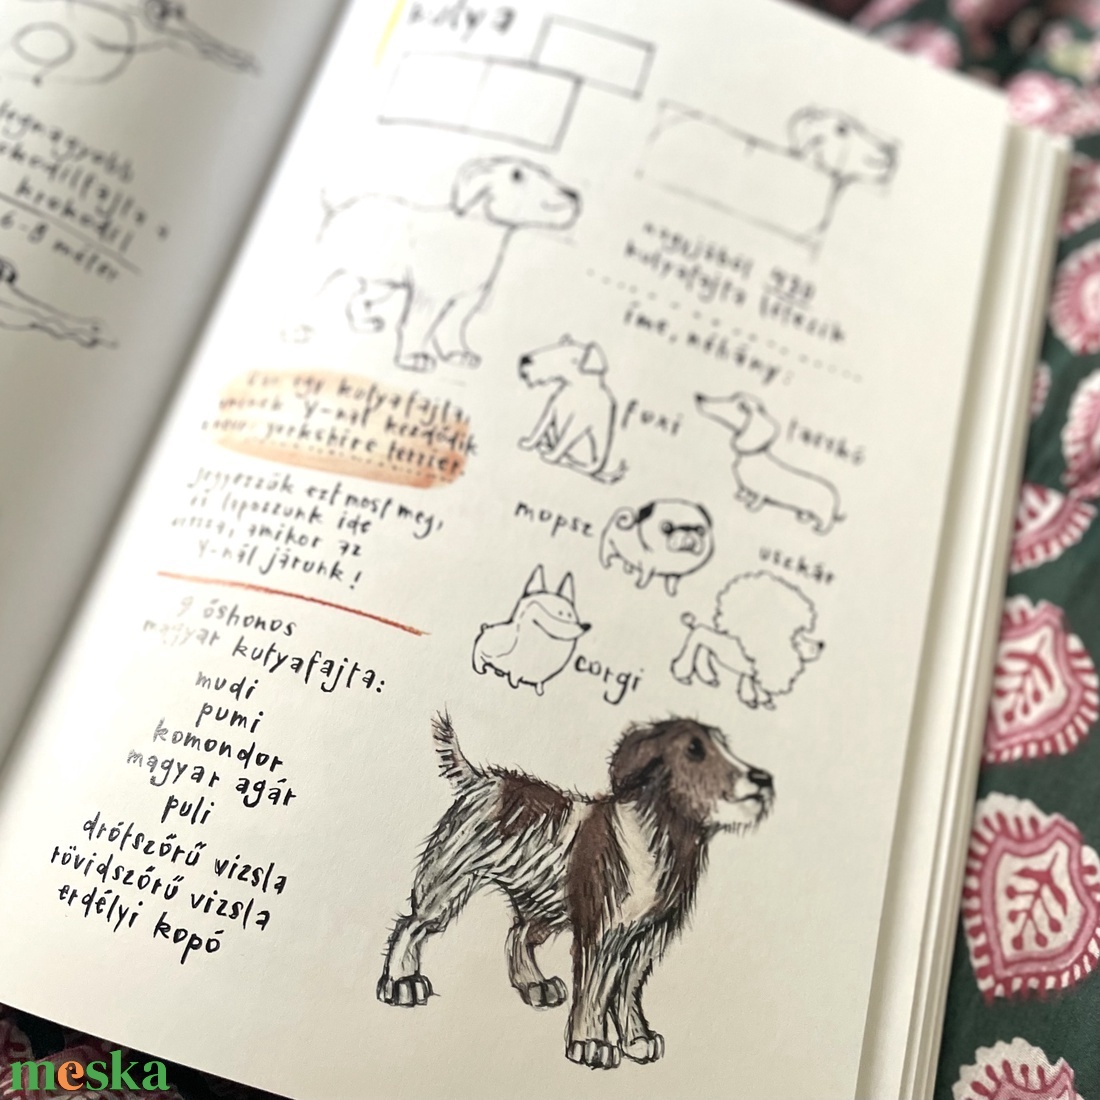 legnagyobb
krokodilfajta a
krokodil
6-8 méter
kutya
nagyjából 430
kutyafajta létezik
íme, néhány:
foxi
tacskó
mopsz
uszkár
corgi
Van egy kutyafajta,
aminek Y-nal kezdődik
a neve: yorkshire terrier.
Jegyezzük ezt most meg,
és lapozzunk ide
vissza, amikor az
Y-nál járunk!
9 őshonos
magyar kutyafajta:
mudi
pumi
komondor
magyar agár
puli
drótszőrű vizsla
rövidszőrű vizsla
erdélyi kopó
meska